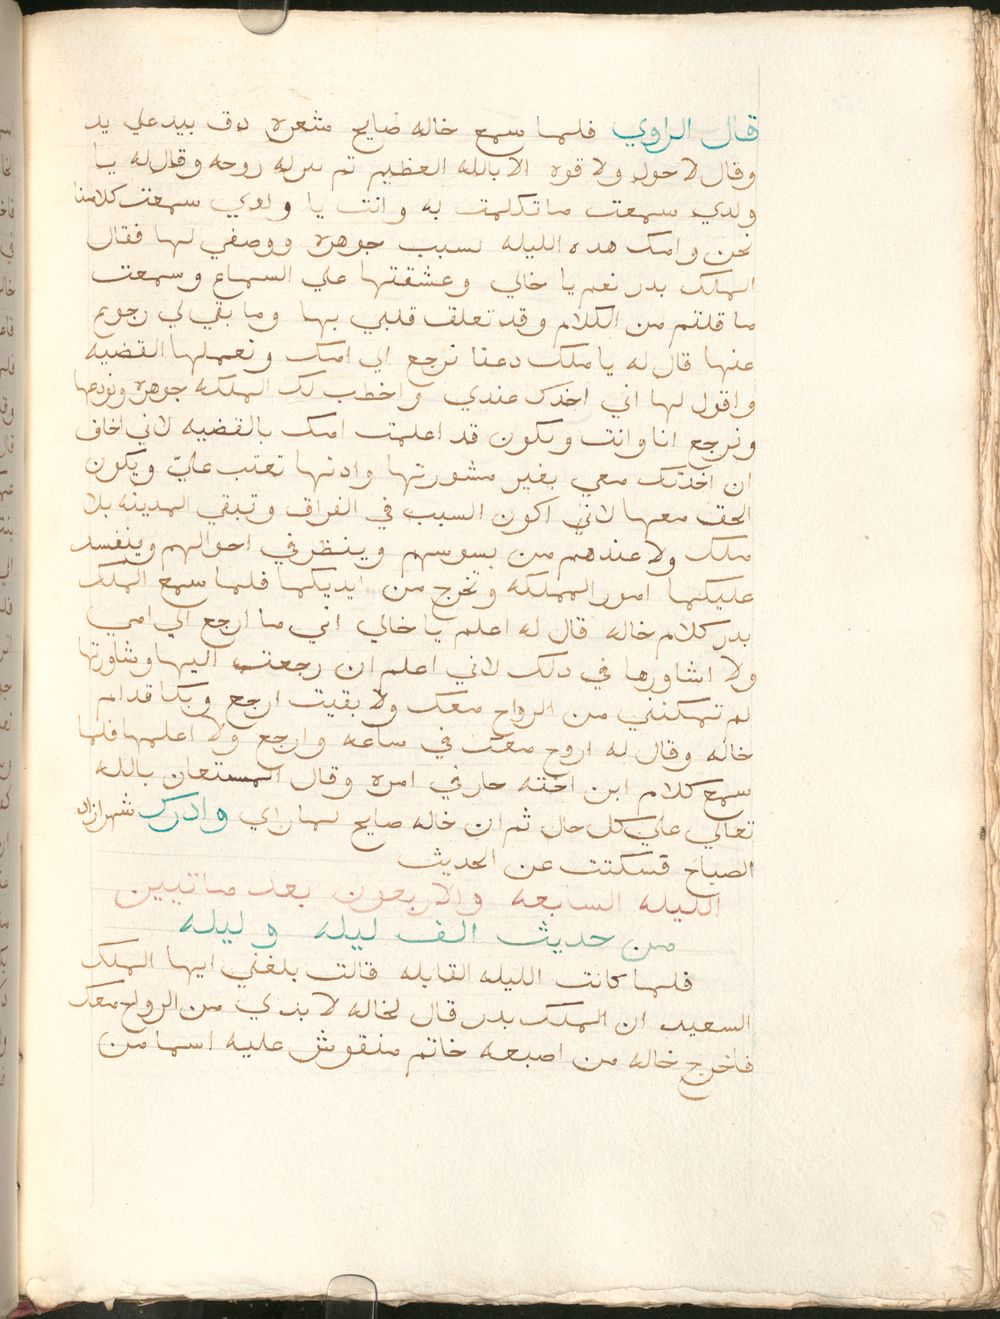 قال الراوي فلما سمع خاله صايح متعره دق بيد علي يد
وقال لا حول ولا قوه الا بالله العظيم تم سرله روحه وقال له يا
ولدي سمعت ما تكلمت به وانت يا ولدي سمعت كلامنا
نحن وامك هده الليله بسبب جوهره ووصفي لها فقال
الملك بدر نعم يا خالي وعشقتها علي السماع وسمعت
ما قلتم من الكلام وقد تعلق قلبي بها وما بقي لي رجوع
عنها قال له يا ملك دعنا نرجع الي امك ونعملها القضيه
واقول لها اني اخدك عندي واخطب لك الملكه جوهره ونودعها
ونرجع انا وانت ويكون قد اعلمت امك بالقضيه لاني اخاف
ان اخدتك معي بغير مشورتها وادنها تعتب عليّ ويكون
الحق معها لاني اكون السبب في الفراق وتبقي المدينه بلا
ملك ولا عندهم من يسوسهم وينظر في احوالهم وينفسد
عليكما امور المملكه وتخرج من ايديكما فلما سمع الملك
بدر كلام خاله قال له اعلم يا خالي اني ما ارجع الي امي
ولا اشاورها في دلك لاني اعلم ان رجعت اليها وشاورتها
لم تمكنني من الرواح معك ولا بقيت ارجع وبكا قدام
خاله وقال له اروح معك في ساعه وارجع ولا اعلمها فلما
سمع كلام ابن اخته حار في امره وقال المستعان بالله
تعالي علي كل حال ثم ان خاله صايح لما راي وادرك شهرازاد
الصباح فسكتت عن الحديث
الليله السابعه والاربعون بعد ماتيين
من حديث الف ليله وليله
فلما كانت الليله القابله قالت بلغني ايها الملك
السعيد ان الملك بدر قال لخاله لا بد ي من الرواح معك
فاخرج خاله من اصبعه خاتم منقوش عليه اسما من